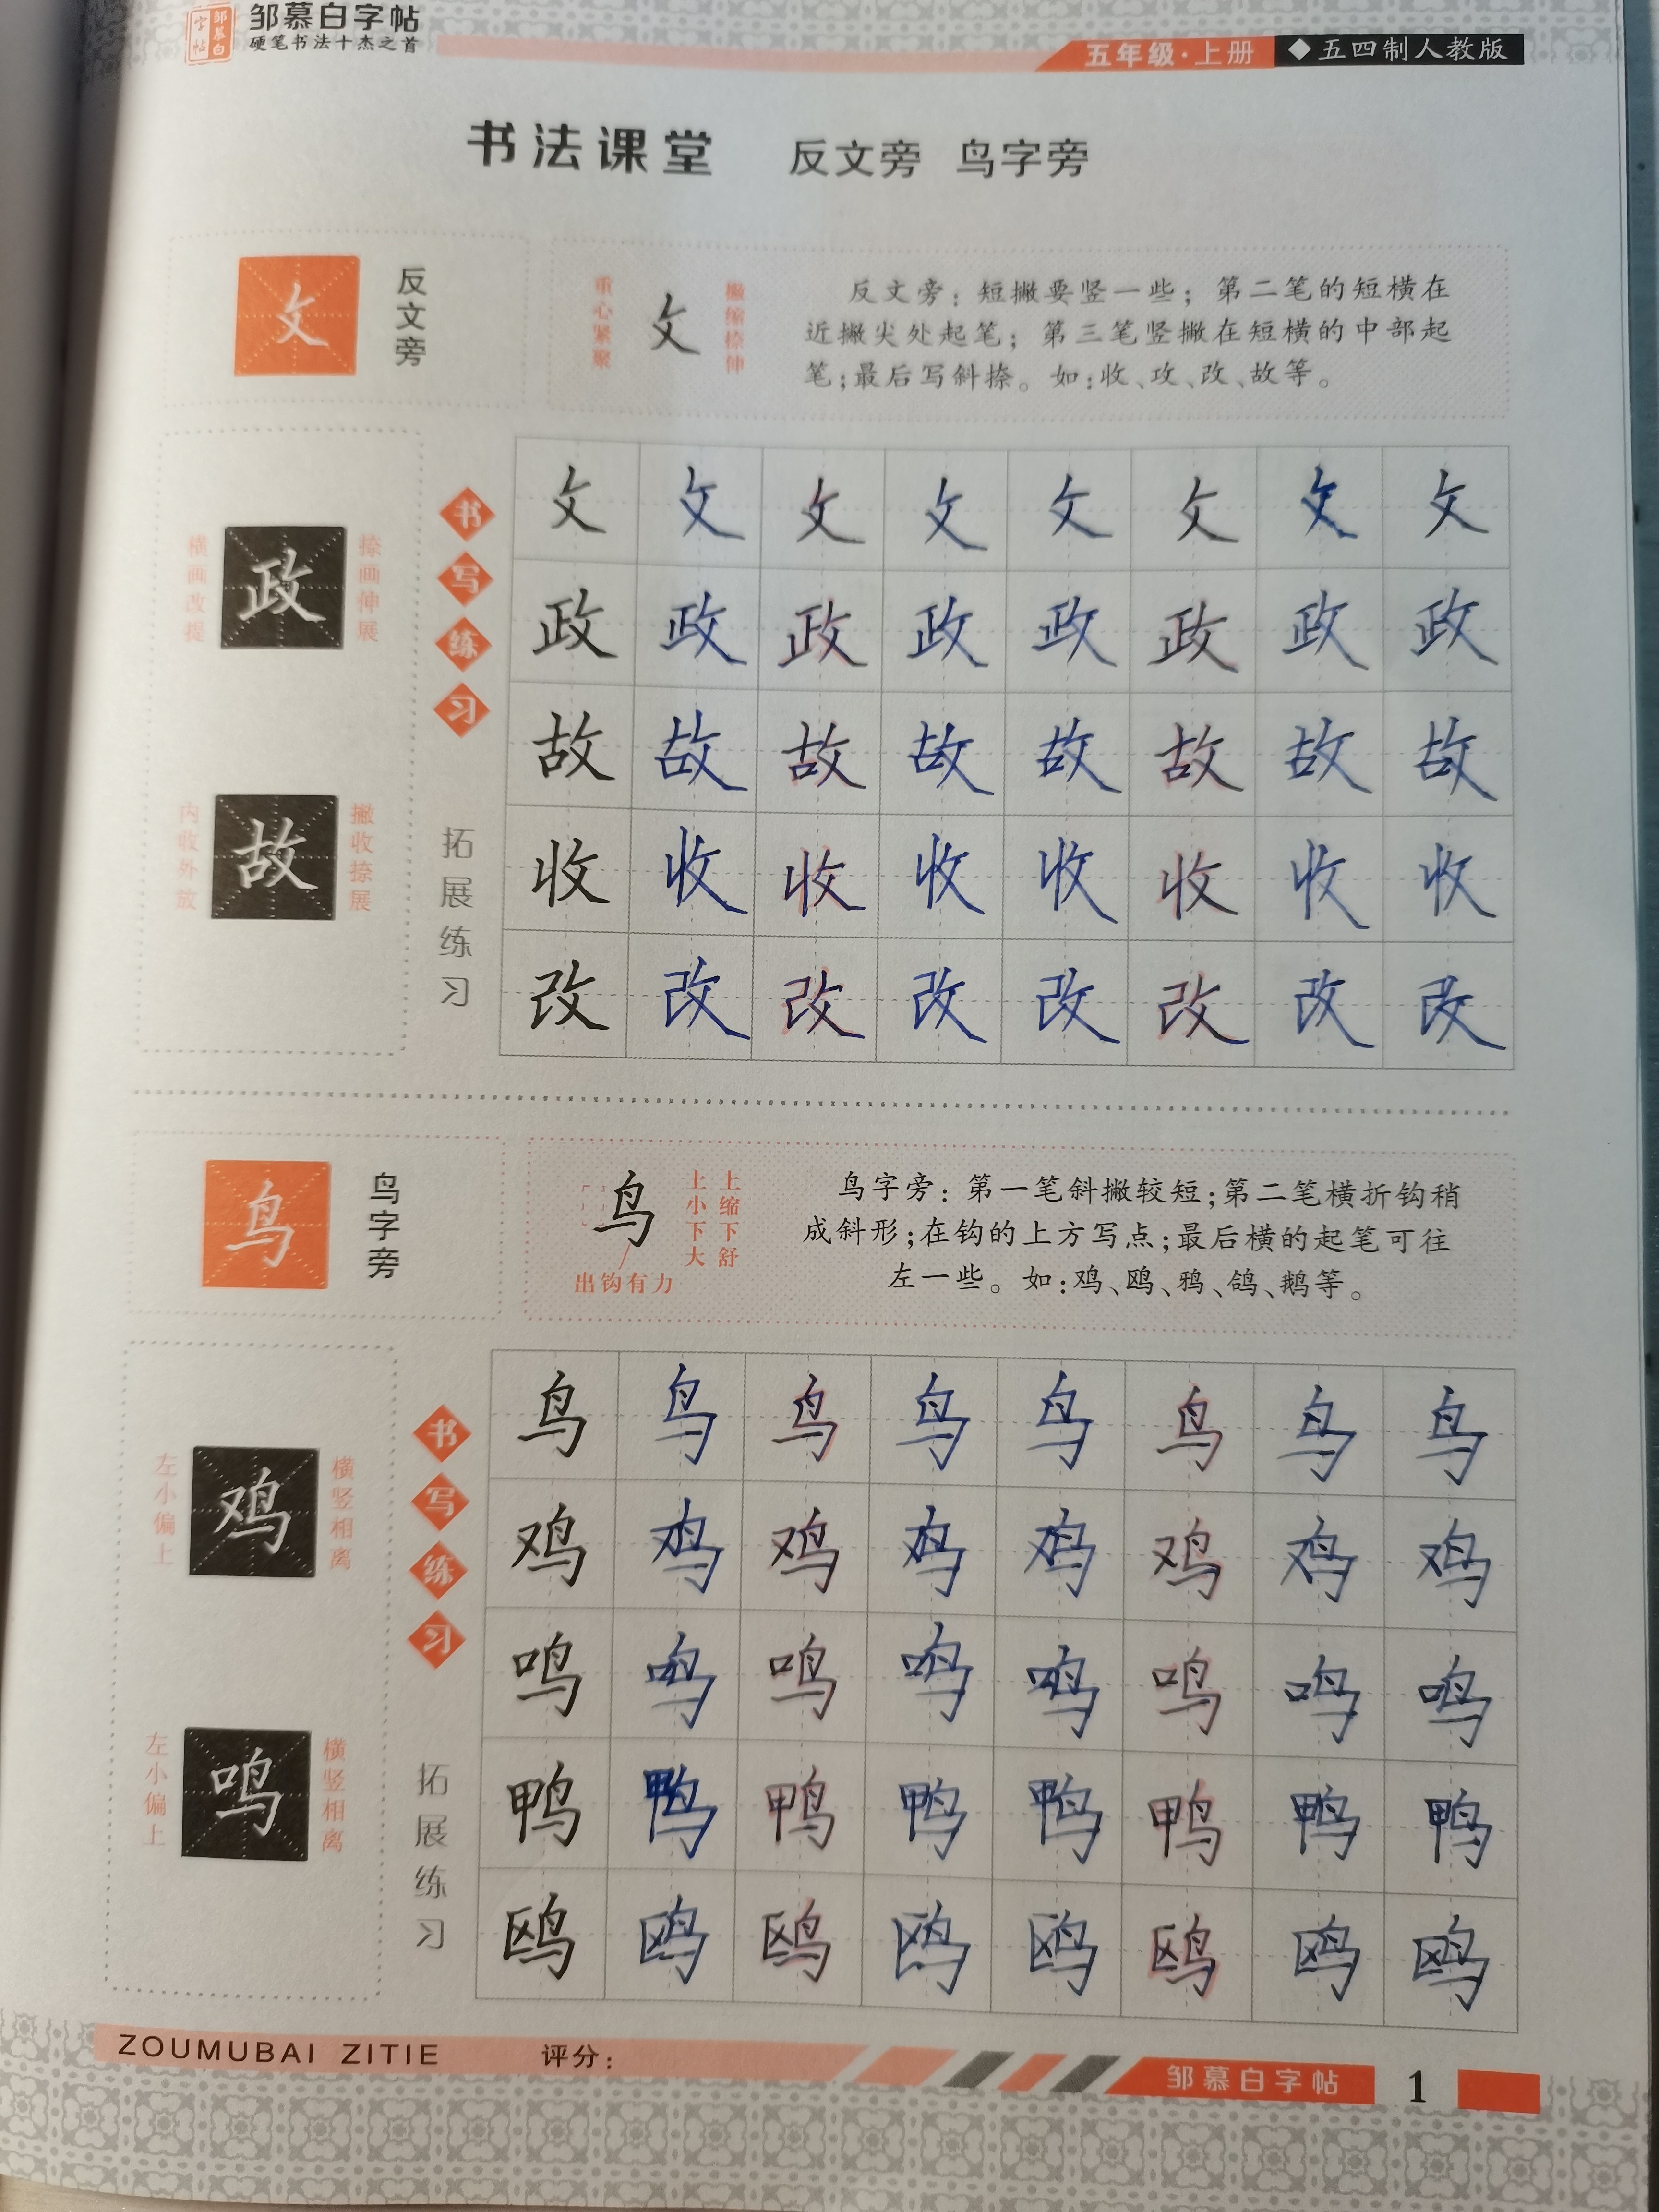 字帖
邹慕白
邹慕白字帖
硬笔书法十杰之首
五年级·上册
◆五四制人教版
书法课堂 反文旁 鸟字旁
攵
反文旁
重心紧聚
攵
撇缩捺伸
反文旁：短撇要竖一些；第二笔的短横在
近撇尖处起笔；第三笔竖撇在短横的中部起
笔；最后写斜捺。如：收、攻、改、故等。
横画改提
政
捺画伸展
内收外放
故
撇收捺展
书写练习
拓展练习
攵 攵 攵 攵 攵 攵 攵 攵
政 政 政 政 政 政 政 政
故 故 故 故 故 故 故 故
收 收 收 收 收 收 收 收
改 改 改 改 改 改 改 改
鸟
鸟字旁
鸟
上小下大
上缩下舒
出钩有力
鸟字旁：第一笔斜撇较短；第二笔横折钩稍
成斜形；在钩的上方写点；最后横的起笔可往
左一些。如：鸡、鸥、鸦、鸽、鹅等。
左小偏上
鸡
横竖相离
左小偏上
鸣
横竖相离
书写练习
拓展练习
鸟 鸟 鸟 鸟 鸟 鸟 鸟 鸟
鸡 鸡 鸡 鸡 鸡 鸡 鸡 鸡
鸣 鸣 鸣 鸣 鸣 鸣 鸣 鸣
鸭 鸭 鸭 鸭 鸭 鸭 鸭 鸭
鸥 鸥 鸥 鸥 鸥 鸥 鸥 鸥
ZOUMUBAI ZITIE
评分：
邹慕白字帖
1